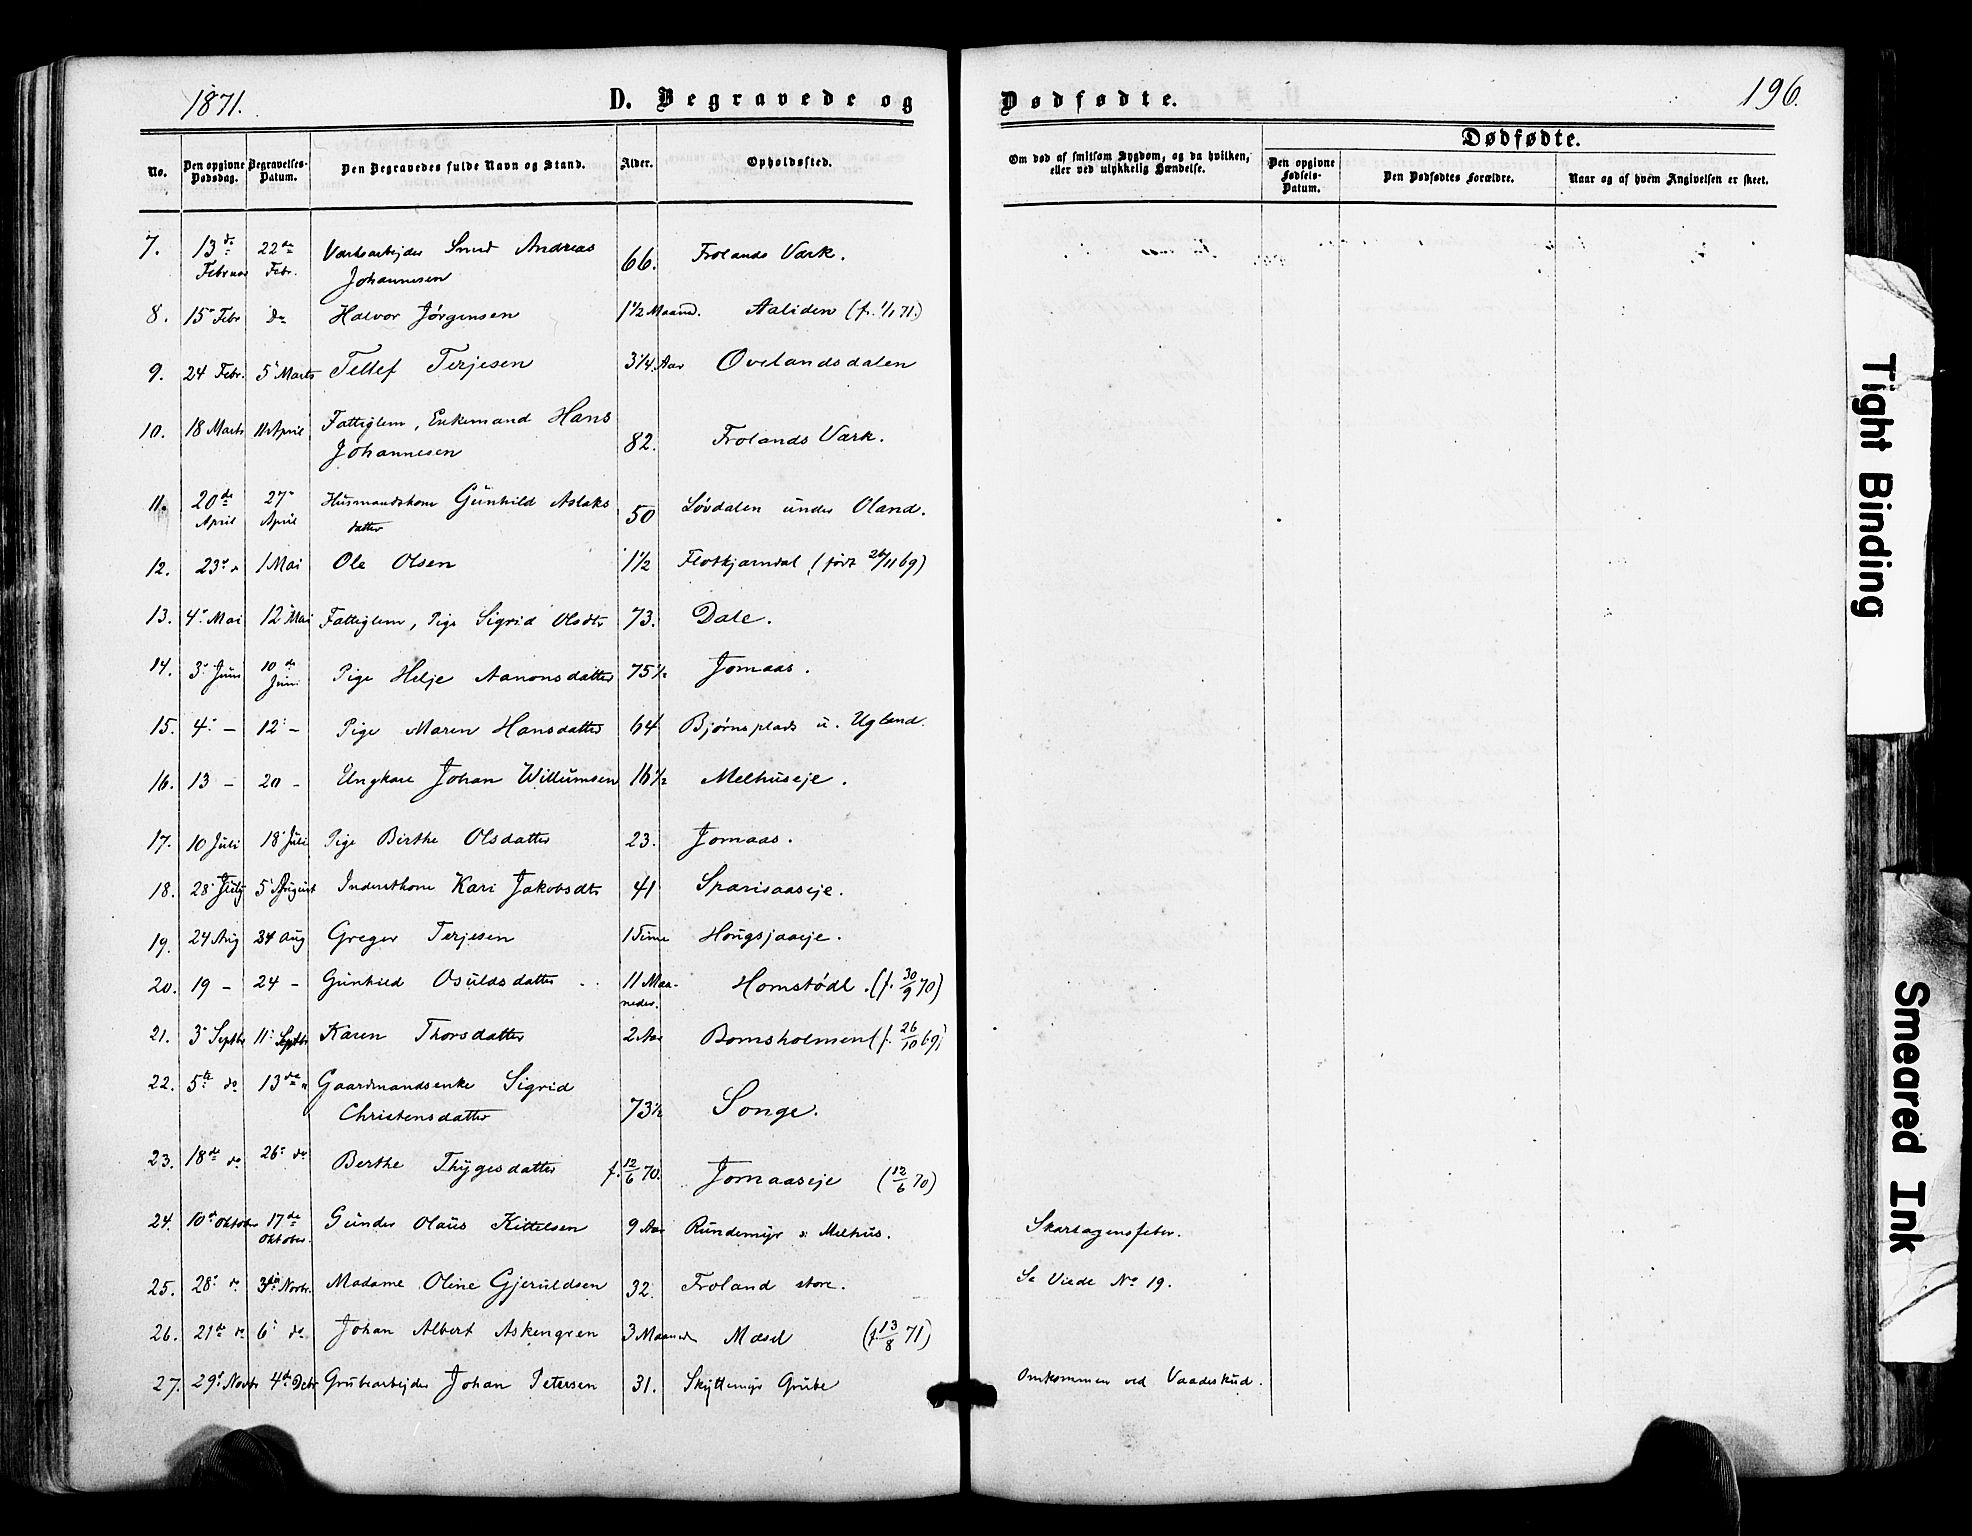 1871.
D. Begravede og
Dødfødte.
196.
No.
Den opgivne Dødsdag.
Begravelses-Datum.
Den Begravedes fulde Navn og Stand.
Alder.
Opholdssted.
Om død af smitsom Sygdom, og da hvilken, eller ved ulykkelig Hændelse.
Dødfødte.
Den opgivne Fødsels-Datum.
Den Dødfødtes Forældre.
Naar og af hvem Angivelsen er skeet.
7. 13de Februar 22de Febr. Værksarbejder Smed Andreas Johannesen 66. Frolands Værk.
8. 15 Febr do Halvor Jørgensen 1½ Maaned. Aaliden (f. 1/1 71.)
9. 24 Febr. 5 Marts Tellef Terjesen 3 1/4 Aar Ovelandsdalen
10. 18 Marts 11 April Fattiglem, Enkemand Hans Johannesen 82. Frolands Værk.
11. 20de April 27 April Husmandskone Gunhild Aslaksdatter 50 Løvdalen under Oland.
12. 23 1 Mai Ole Olsen 1½ Flotkjærndal (født 26/11 69)
13. 4 Mai 12 Mai Fattiglem, Pige Sigrid Olsdtr 73. Dale.
14. 3 Juni 10de Juni Pige Helje Aanonsdatter 75½ Jomaas.
15. 4 – 12 – Pige Maren Hansdatter 64 Bjørnsplads u. Ugland.
16. 13 – 20 – Ungkarl Johan Willumsen 16½ Melhuseje.
17. 10 Juli 18 Juli Pige Birthe Olsdatter 23. Jomaas.
18. 28 July 5 August Inderstkone Kari Jakobsdtr 41 Sparisaaseje.
19. 24 Aug 34 Aug Greger Terjesen 1 Time Hougsjaaeje.
20. 19 – 24 – Gunhild Osuldsdatter 11 Maaneder. Homstødl. (f. 30/9 70)
21. 3 Septbr 11 Septbr Karen Thorsdatter 2 Aar Bomsholmen (f. 26/10 69)
22. 5te do 13de Gaardmandsenke Sigrid Christensdatter 73½ Songe.
23. 18de do 26 do Berthe Thygesdatter f. 12/6 70. Jomaaseje (12/6 70)
24. 10de Oktober 17de Oktober. Gunder Olaus Kittelsen 9 Aar Rundemyr u. Melhus. Skarlagensfeber.
25. 28 do 3die Novbr. Madame Oline Gjeruldsen 32. Froland store. Se Viede No 19.
26. 21de do 6 do Johan Albert Askengren 3 Maaneder Mæsel (f. 13/8 71)
27. 29 Novbr 4de Debr Grubearbejder Johan Petersen 31. Skyttemyr Grube Omkommen ved Vaadeskud.
Tight Binding
Smeared Ink